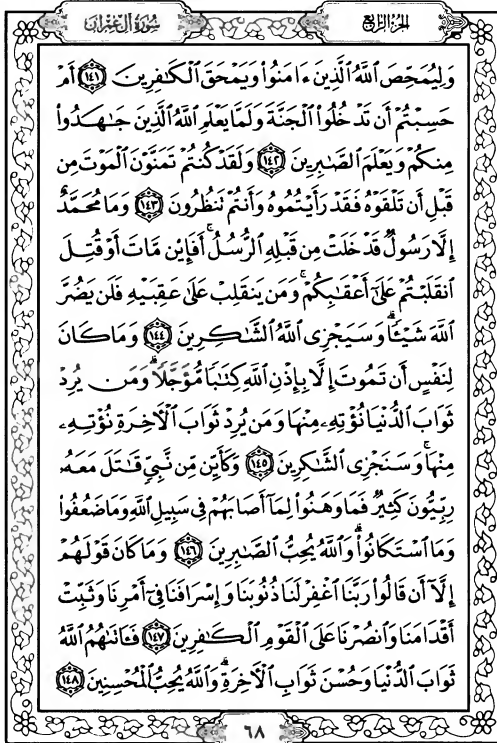 سُورَةُ آلِ عِمْرَان
الجُزءُ الرَّابِعُ
وَلِيُمَحِّصَ ٱللَّهُ ٱلَّذِينَ ءَامَنُواْ وَيَمْحَقَ ٱلْكَٰفِرِينَ ١٤١ أَمْ
حَسِبْتُمْ أَن تَدْخُلُواْ ٱلْجَنَّةَ وَلَمَّا يَعْلَمِ ٱللَّهُ ٱلَّذِينَ جَٰهَدُواْ
مِنكُمْ وَيَعْلَمَ ٱلصَّٰبِرِينَ ١٤٢ وَلَقَدْ كُنتُمْ تَمَنَّوْنَ ٱلْمَوْتَ مِن
قَبْلِ أَن تَلْقَوْهُ فَقَدْ رَأَيْتُمُوهُ وَأَنتُمْ تَنظُرُونَ ١٤٣ وَمَا مُحَمَّدٌ
إِلَّا رَسُولٌ قَدْ خَلَتْ مِن قَبْلِهِ ٱلرُّسُلُ ۚ أَفَإِيْن مَّاتَ أَوْ قُتِلَ
ٱنقَلَبْتُمْ عَلَىٰٓ أَعْقَٰبِكُمْ ۚ وَمَن يَنقَلِبْ عَلَىٰ عَقِبَيْهِ فَلَن يَضُرَّ
ٱللَّهَ شَيْـًٔا ۗ وَسَيَجْزِى ٱللَّهُ ٱلشَّٰكِرِينَ ١٤٤ وَمَا كَانَ
لِنَفْسٍ أَن تَمُوتَ إِلَّا بِإِذْنِ ٱللَّهِ كِتَٰبًا مُّؤَجَّلًا ۗ وَمَن يُرِدْ
ثَوَابَ ٱلدُّنْيَا نُؤْتِهِۦ مِنْهَا وَمَن يُرِدْ ثَوَابَ ٱلْأَخِرَةِ نُؤْتِهِۦ
مِنْهَا ۚ وَسَنَجْزِى ٱلشَّٰكِرِينَ ١٤٥ وَكَأَيِّن مِّن نَّبِىٍّ قَٰتَلَ مَعَهُۥ
رِبِّيُّونَ كَثِيرٌ فَمَا وَهَنُواْ لِمَآ أَصَابَهُمْ فِى سَبِيلِ ٱللَّهِ وَمَا ضَعُفُواْ
وَمَا ٱسْتَكَانُواْ ۗ وَٱللَّهُ يُحِبُّ ٱلصَّٰبِرِينَ ١٤٦ وَمَا كَانَ قَوْلَهُمْ
إِلَّآ أَن قَالُواْ رَبَّنَا ٱغْفِرْ لَنَا ذُنُوبَنَا وَإِسْرَافَنَا فِىٓ أَمْرِنَا وَثَبِّتْ
أَقْدَامَنَا وَٱنصُرْنَا عَلَى ٱلْقَوْمِ ٱلْكَٰفِرِينَ ١٤٧ فَـَٔاتَىٰهُمُ ٱللَّهُ
ثَوَابَ ٱلدُّنْيَا وَحُسْنَ ثَوَابِ ٱلْأَخِرَةِ ۗ وَٱللَّهُ يُحِبُّ ٱلْمُحْسِنِينَ ١٤٨
٦٨